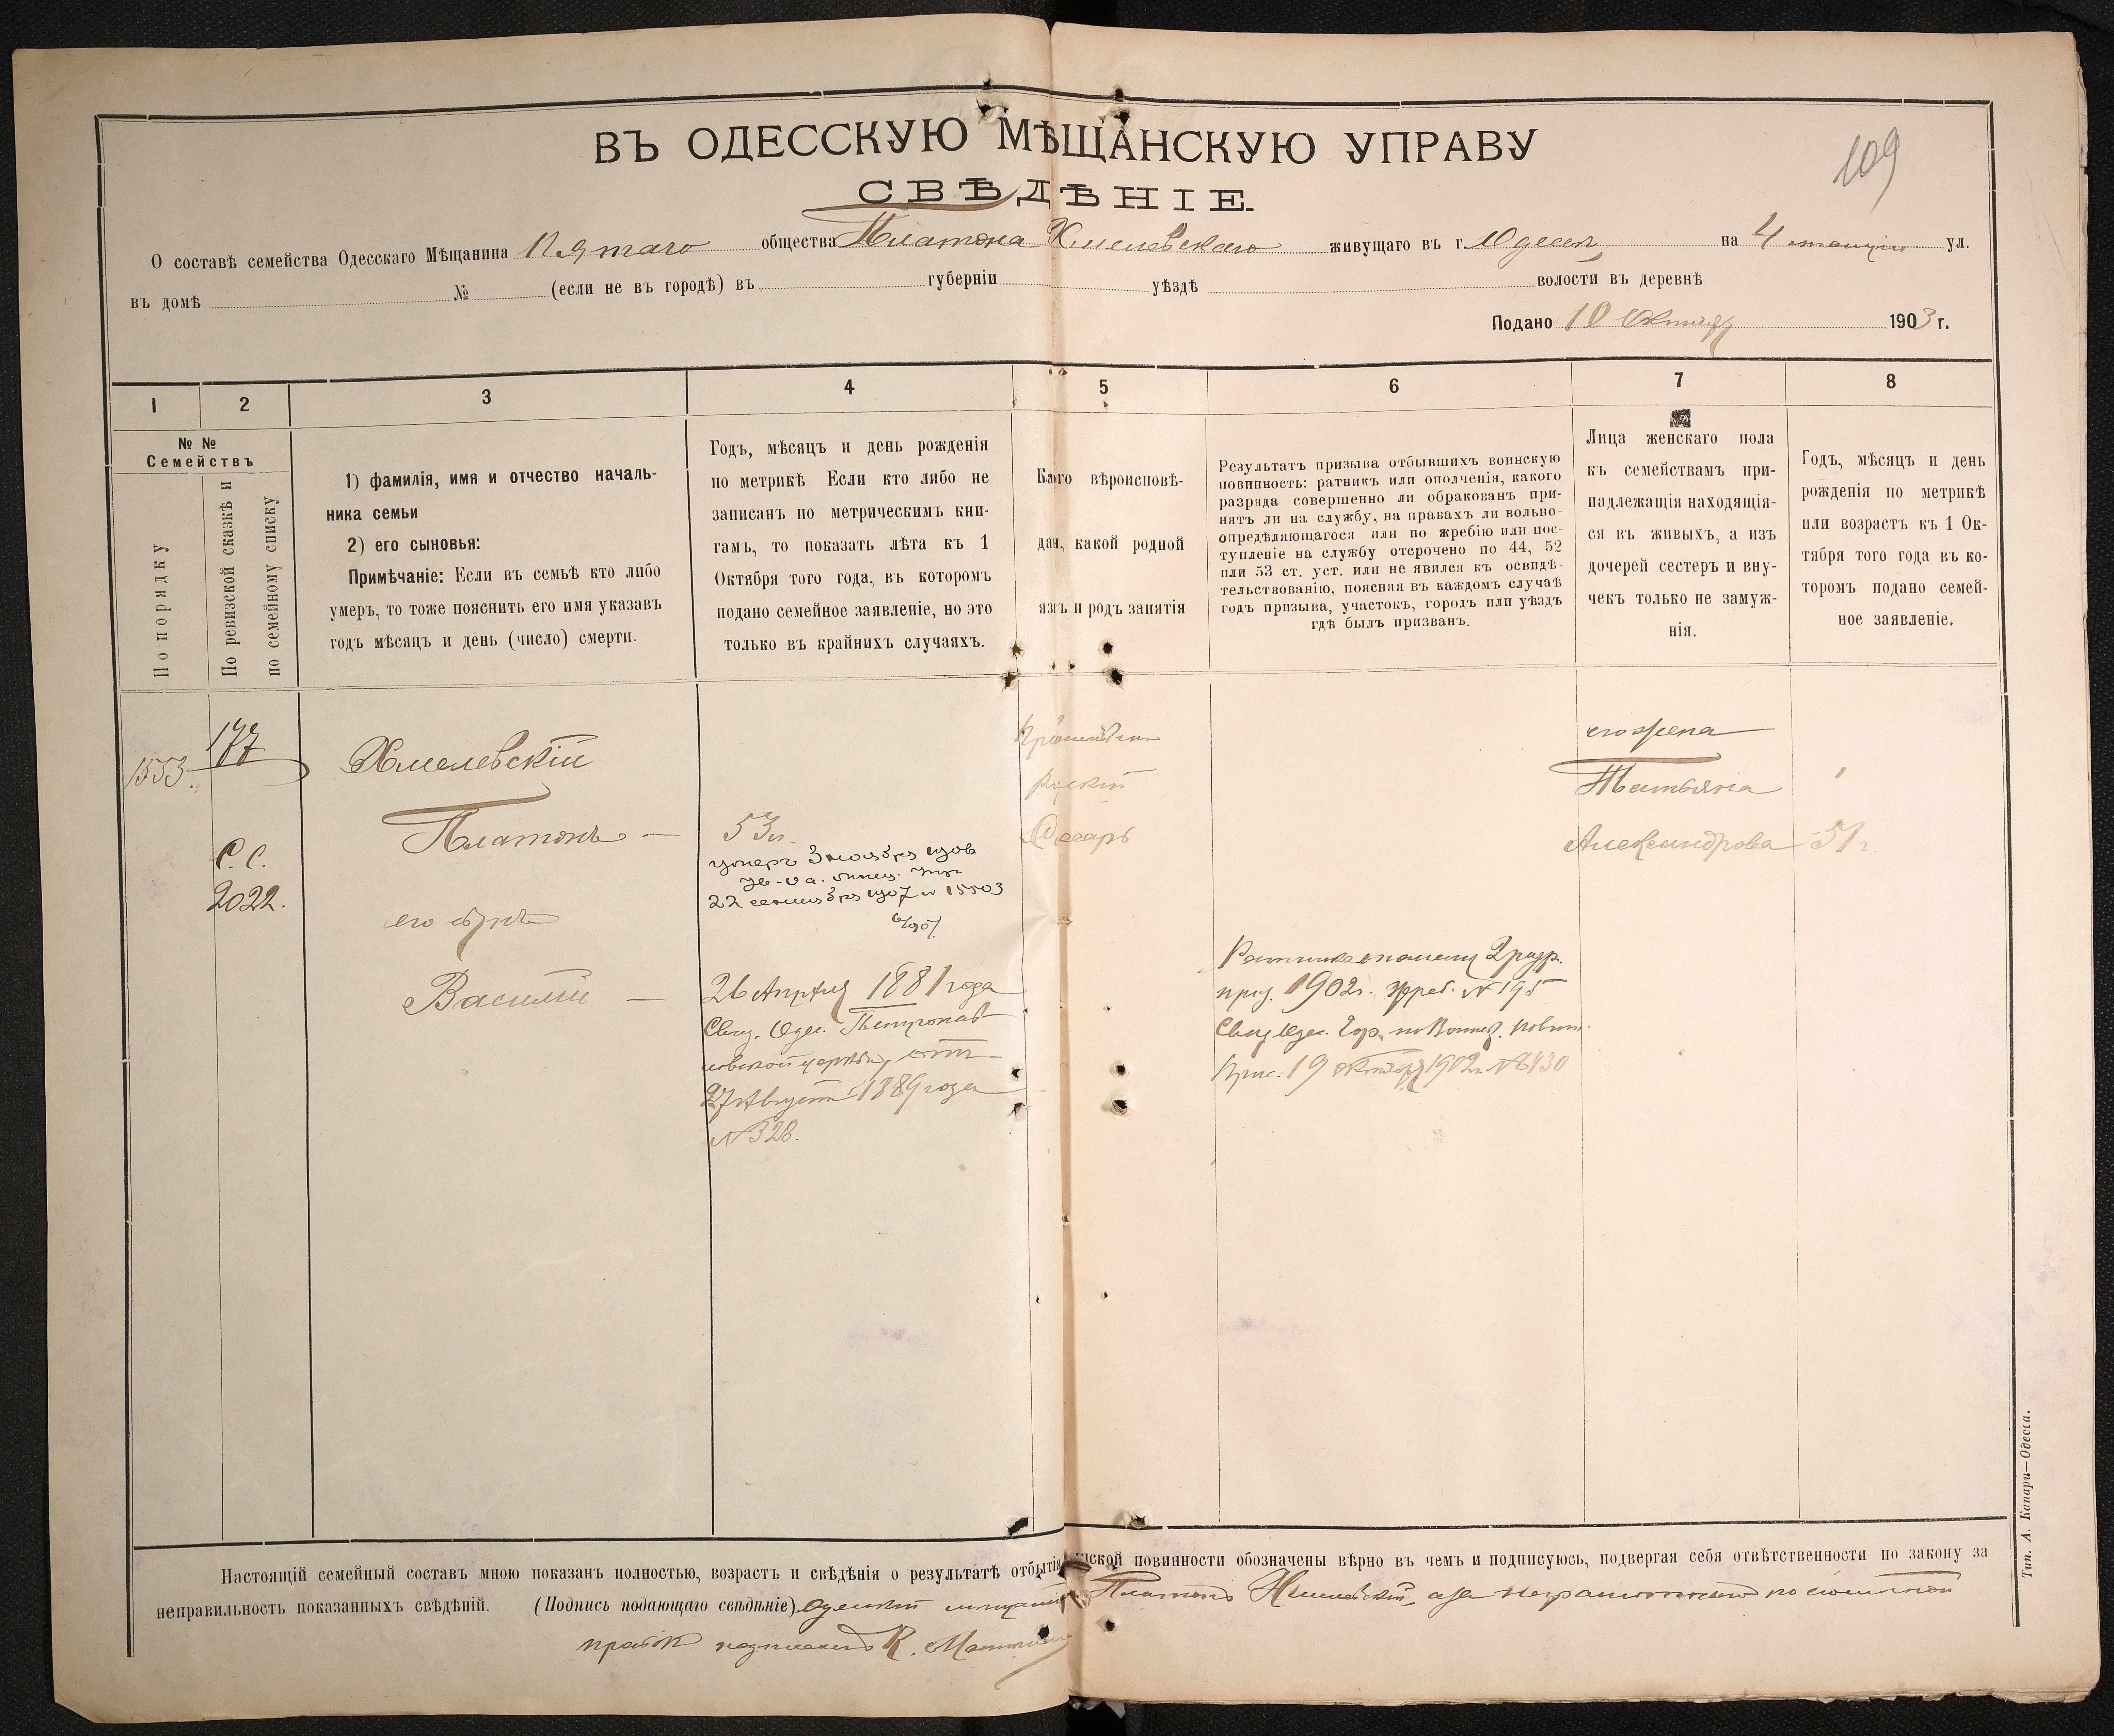 109
ВЪ ОДЕССКУЮ МѢЩАНСКУЮ УПРАВУ
СВѢДѢНІЕ.
О составѣ семейства Одесскаго Мѣщанина Пятаго общества Платона Хмелевскаго живущаго въ г. Одессѣ на 4 станціи ул.
въ домѣ № (если не въ городѣ) въ губерніи уѣздѣ волости въ деревнѣ
Подано 10 Октября 1903 г.
1 2 3 4 5 6 7 8
№ №
Семействъ
По порядку
По ревизской сказкѣ и
по семейному списку
1) фамилія, имя и отчество началь-
ника семьи
2) его сыновья:
Примѣчаніе: Если въ семьѣ кто либо
умеръ, то тоже пояснить его имя указавъ
годъ мѣсяцъ и день (число) смерти.
Годъ, мѣсяцъ и день рожденія
по метрикѣ Если кто либо не
записанъ по метрическимъ кни-
гамъ, то показать лѣта къ 1
Октября того года, въ которомъ
подано семейное заявленіе, но это
только въ крайнихъ случаяхъ.
Какого вѣроисповѣ-
данія, какой родной
языкъ и родъ занятія
Результатъ призыва отбывшихъ воинскую
повинность: ратникъ или ополченія, какого
разряда совершенно ли обракованъ при-
нятъ ли на службу, на правахъ ли вольно-
опредѣляющагося или по жребію или пос-
тупленіе на службу отсрочено по 44, 52
или 53 ст. уст. или не явился къ освидѣ-
тельствованію, поясняя въ каждомъ случаѣ
годъ призыва, участокъ, городъ или уѣздъ
гдѣ былъ призванъ.
Лица женскаго пола
къ семействамъ при-
надлежащія находящія-
ся въ живыхъ, а изъ
дочерей сестеръ и вну-
чекъ только не замуж-
нія.
Годъ, мѣсяцъ и день
рожденія по метрикѣ
или возрастъ къ 1 Ок-
тября того года въ ко-
торомъ подано семей-
ное заявленіе.
1553
177
С. С.
2022.
Хмелевскій
Платонъ —
его сынъ
Василій —
53 л.
умеръ 3 ноября
22 сентября 1907 № 15503
26 Апрѣля 1881 года
Свид. Одес. Петропав-
ловской церкви, отъ
27 Августа 1889 года
№ 328.
Православн
Рускій
Слесарь
Ратникъ ополчен 2 разр.
приз. 1902 г. Жреб. № 195
Свид. Одес. Гор. по Воинск. повин.
Прис. 19 октября 1902 г. № 6430
его жена
Татьяна
Александрова 51 г.
Настоящій семейный составъ мною показанъ полностью, возрастъ и свѣдѣнія о результатѣ отбытія воинской повинности обозначены вѣрно въ чемъ и подписуюсь, подвергая себя отвѣтственности по закону за
неправильность показанныхъ свѣдѣній. (Подпись подающаго свѣдѣніе) Одесскій мещанинъ Платонъ Хмелевскій, а за неграмотностью по его личной
прозбѣ подписалъ К.
Тип. А. Капари—Одесса.